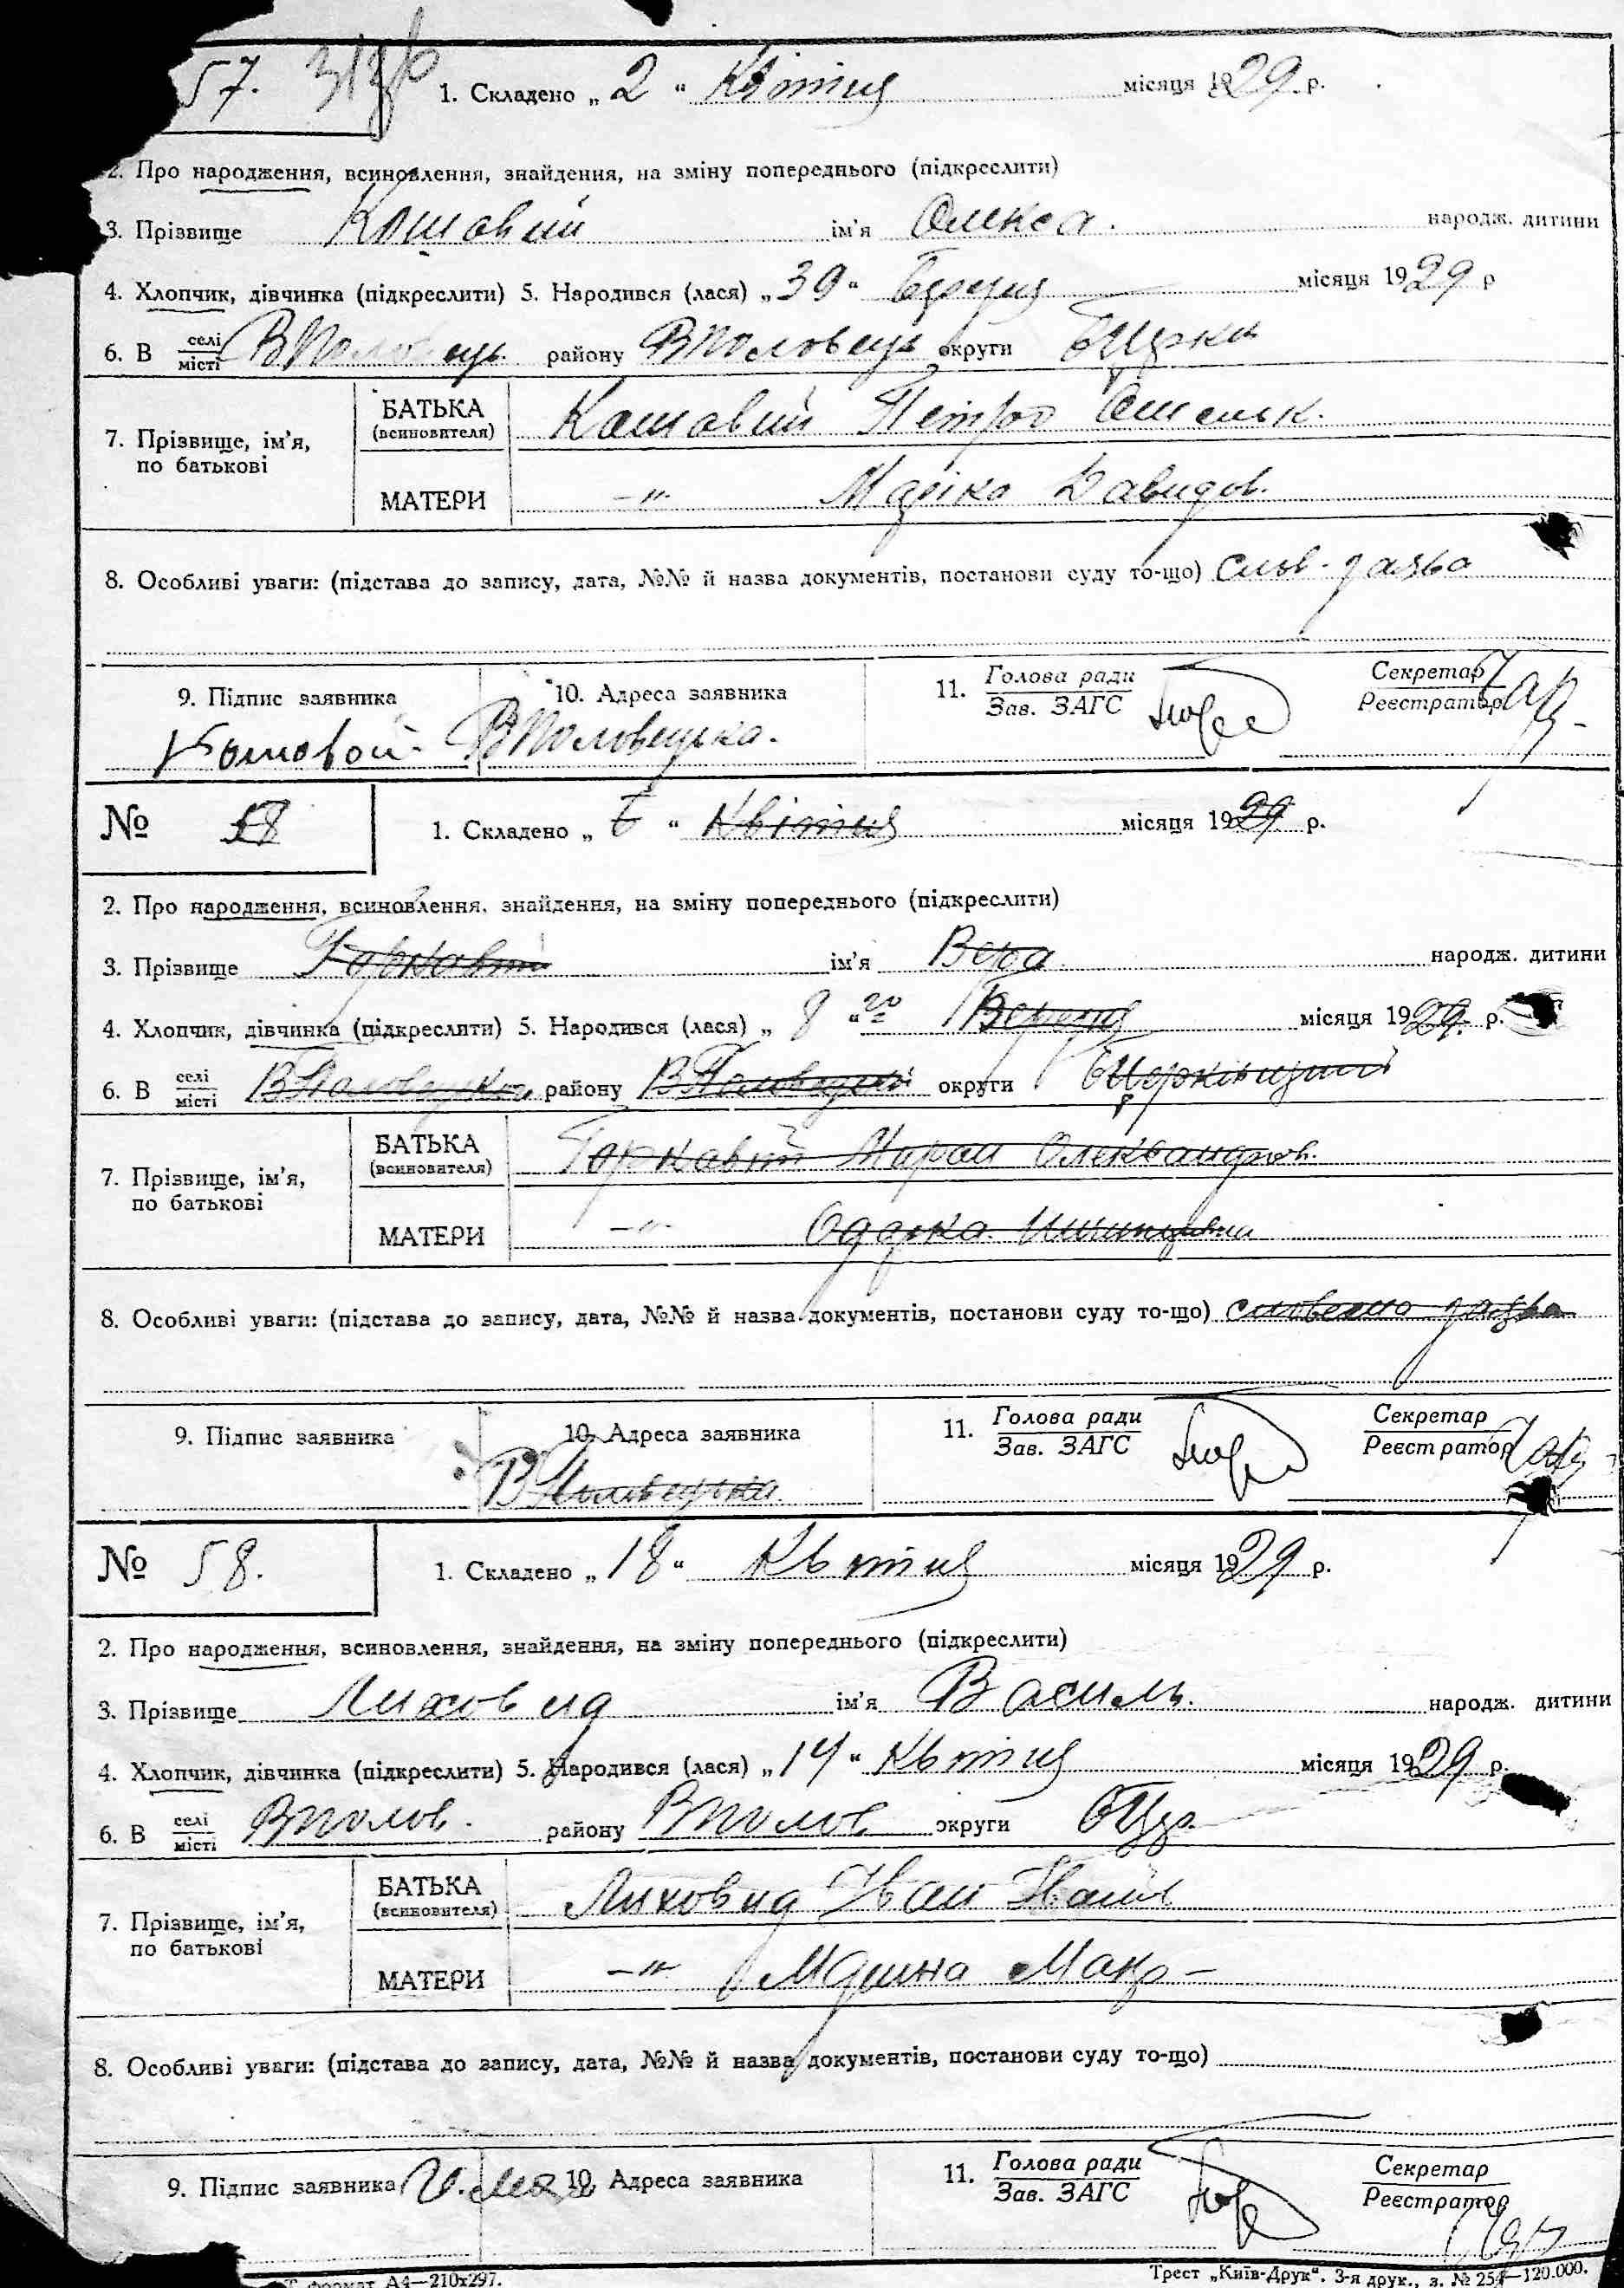 57.
1. Складено „ 2 “ Квітня місяця 1929 р.
2. Про народження, всиновлення, знайдення, на зміну попереднього (підкреслити)
3. Прізвище Кошовий ім'я Олекса. народж. дитини
4. Хлопчик, дівчинка (підкреслити) 5. Народився (лася) „ 30 “ Березня місяця 1929 р
6. В селі місті ВПоловець. району ВПоловець округи БЦерки
7. Прізвище, ім'я, по батькові
БАТЬКА (всиновителя) Кошовий Петро Омельк.
МАТЕРИ –„– Маріка Давидов.
8. Особливі уваги: (підстава до запису, дата, №№ й назва документів, постанови суду то-що) слов. заява
9. Підпис заявника 10. Адреса заявника 11. Голова ради Зав. ЗАГС Секретар Реєстратор
Кошовой ВПоловецька.
№ 58
1. Складено „ 6 “ Квітня місяця 1929 р.
2. Про народження, всиновлення, знайдення, на зміну попереднього (підкреслити)
3. Прізвище Горкавий ім'я Вера народж. дитини
4. Хлопчик, дівчинка (підкреслити) 5. Народився (лася) „ 8 “ го Березня місяця 1929. р.
6. В селі місті ВПоловецька району ВПоловецький округи БЦерківський
7. Прізвище, ім'я, по батькові
БАТЬКА (всиновителя) Горкавий Мирон Олександров.
МАТЕРИ –„– Одарка
8. Особливі уваги: (підстава до запису, дата, №№ й назва документів, постанови суду то-що) словесна заява
9. Підпис заявника 10. Адреса заявника 11. Голова ради Зав. ЗАГС Секретар Реєстратор
ВПоловецька.
№ 58.
1. Складено „ 18 “ Квітня місяця 1929 р.
2. Про народження, всиновлення, знайдення, на зміну попереднього (підкреслити)
3. Прізвище Лиховид ім'я Василь. народж. дитини
4. Хлопчик, дівчинка (підкреслити) 5. Народився (лася) „ 14 “ Квітня місяця 1929 р.
6. В селі місті ВПолов. району ВПолов округи БЦер.
7. Прізвище, ім'я, по батькові
БАТЬКА (всиновителя) Лиховид Іван
МАТЕРИ –„– Марина Макр–
8. Особливі уваги: (підстава до запису, дата, №№ й назва документів, постанови суду то-що)
9. Підпис заявника 10. Адреса заявника 11. Голова ради Зав. ЗАГС Секретар Реєстратор
формат А4—210х297.
Трест „Київ-Друк“. 3-я друк., з. № 254—120.000.